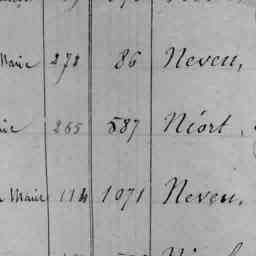 Marie 272 86 Neveu,
265 587 Niort,
Marie 114 1071 Neveu.